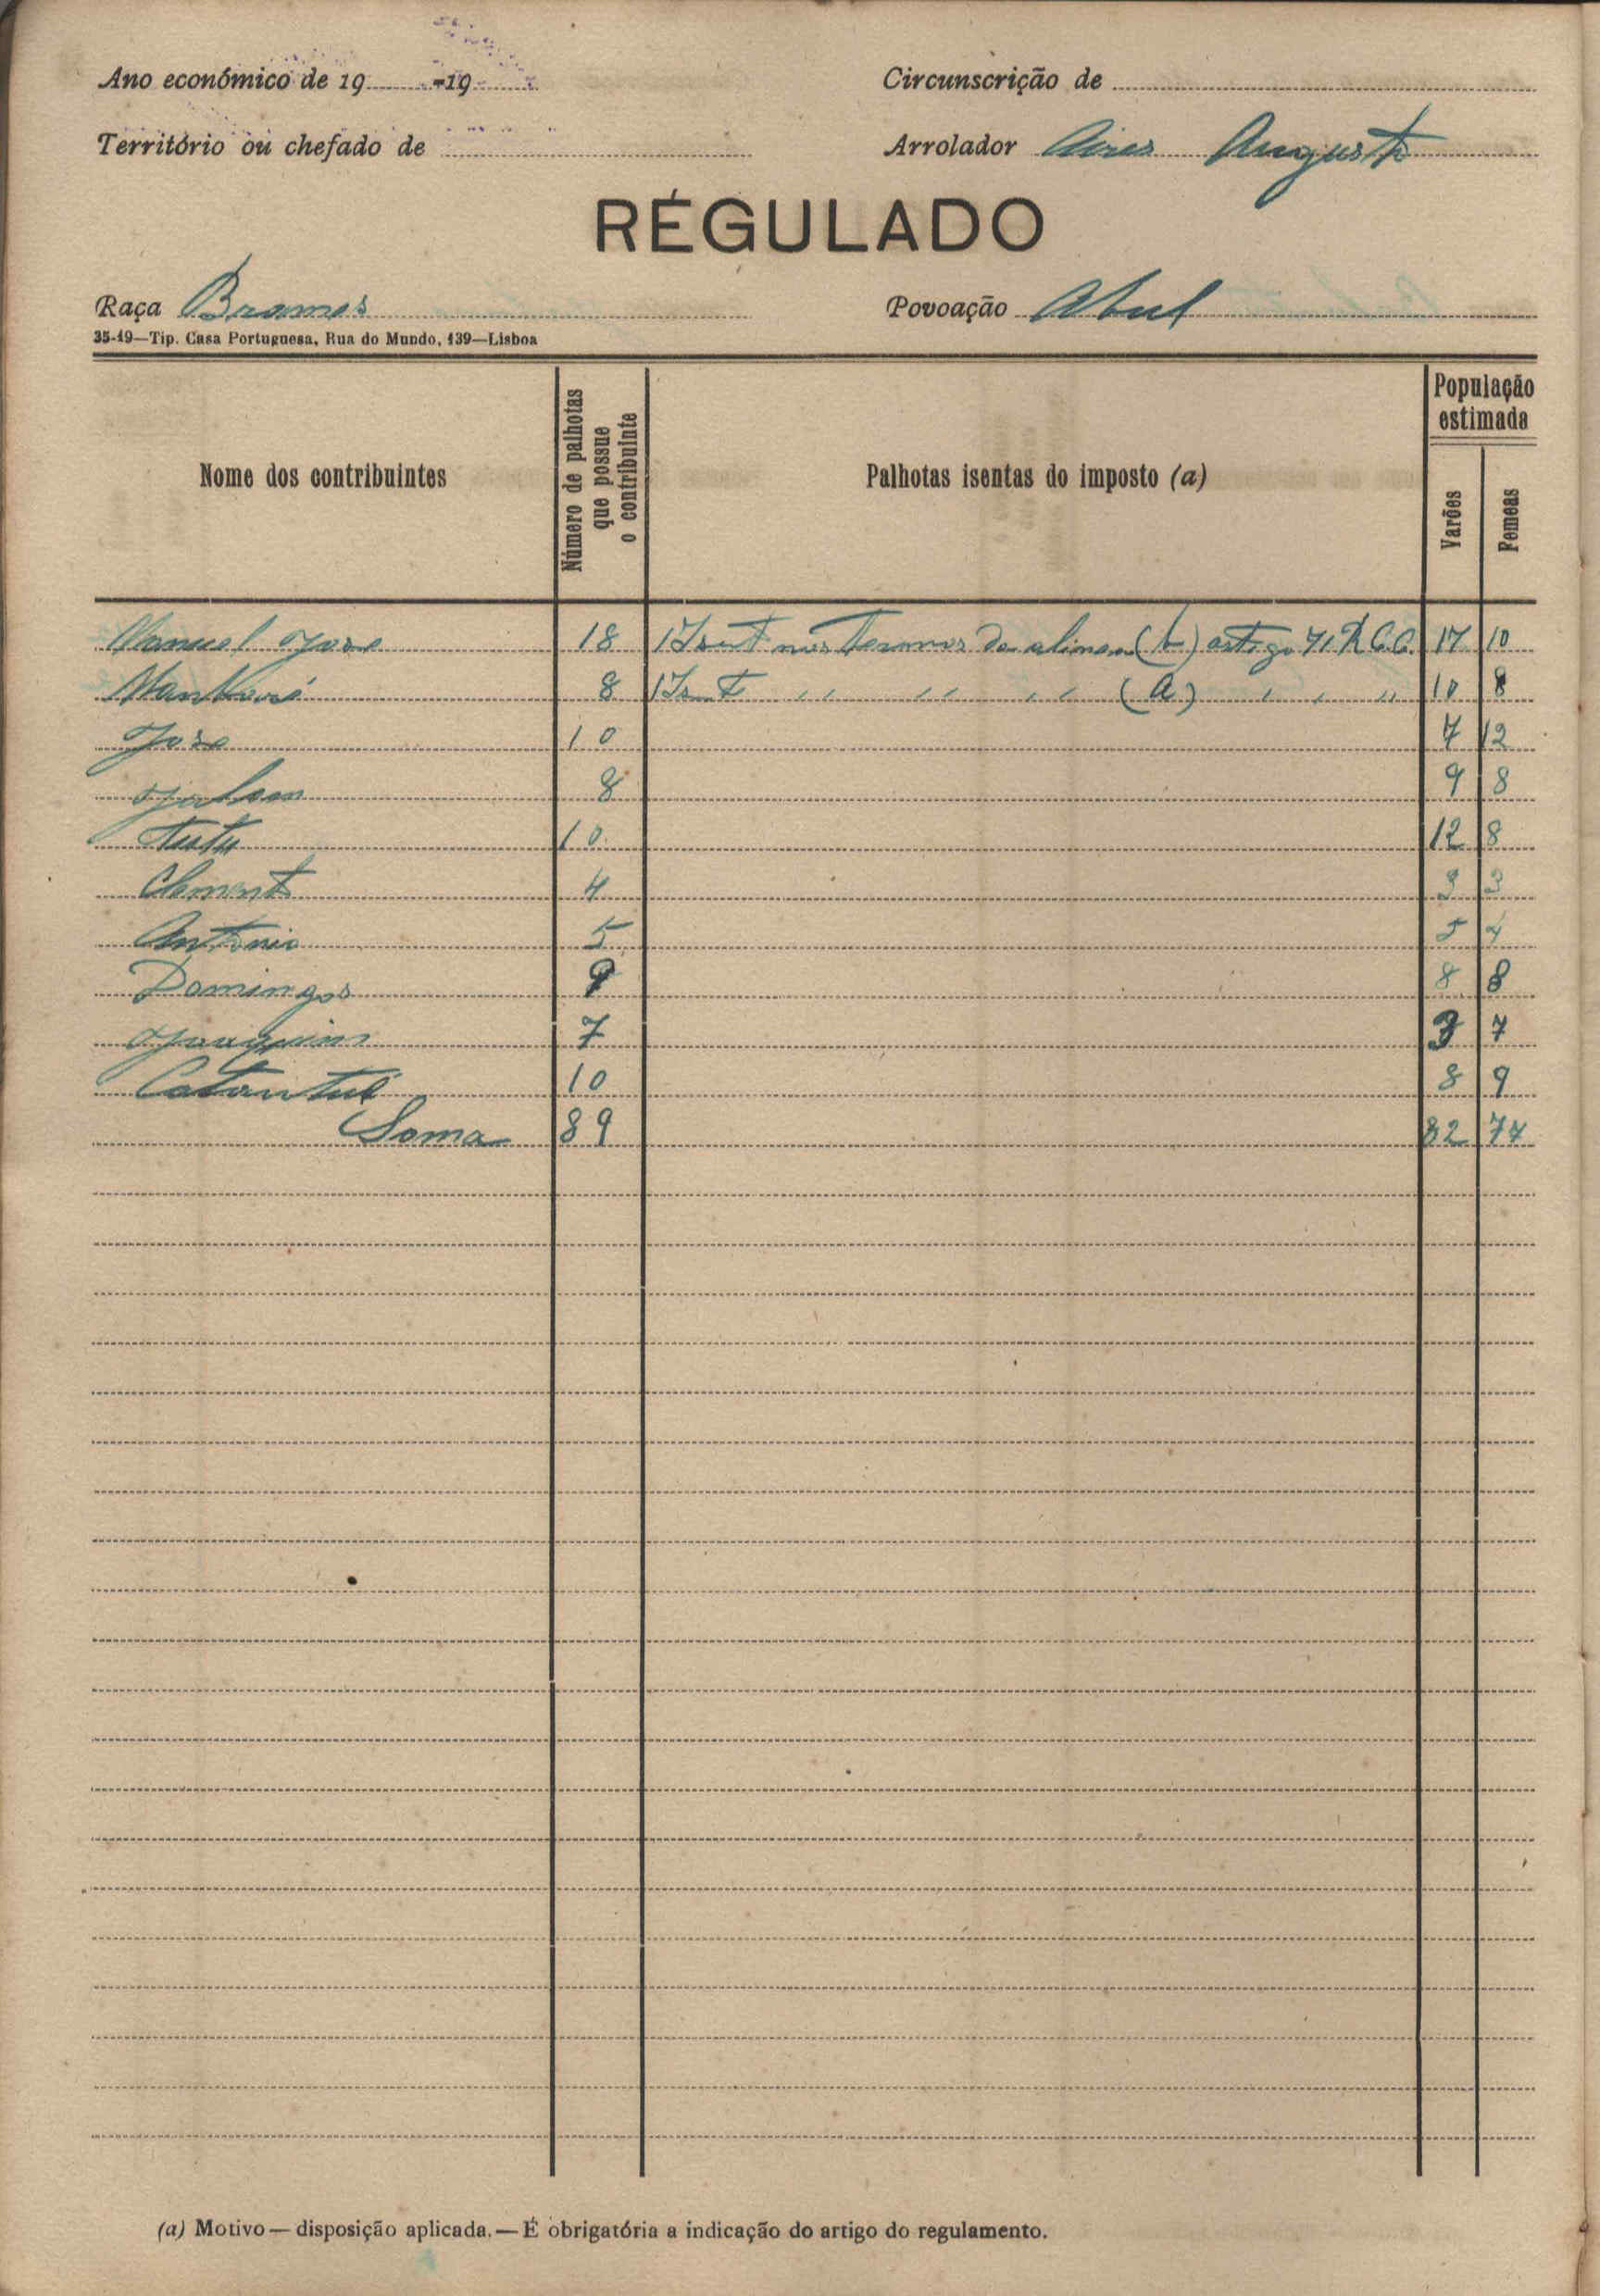 Ano económico de 19 -19 Circunscrição de
Território ou chefado de Arrolador Aires Augusto
RÉGULADO
Raça Brames Povoação
35-19—Tip. Casa Portuguesa, Rua do Mundo, 139—Lisboa
Nome dos contribuintes Número de palhotas que possue o contribuinte Palhotas isentas do imposto (a) População estimada Varões Femeas
Manuel Jose 18 1 Isent nos termos da alinea (b) artigo 41 R.C.C. 17 10
8 1 Isent ,, ,, ,, (a) , , ,, 10 8
Jose 10 7 12
8 9 8
Tutu 10 12 8
Clement 4 3 3
Antonio 5 5 4
Domingos 9 8 8
Joaquim 7 3 7
10 8 9
Soma 89 82 77
(a) Motivo — disposição aplicada. — É obrigatória a indicação do artigo do regulamento.